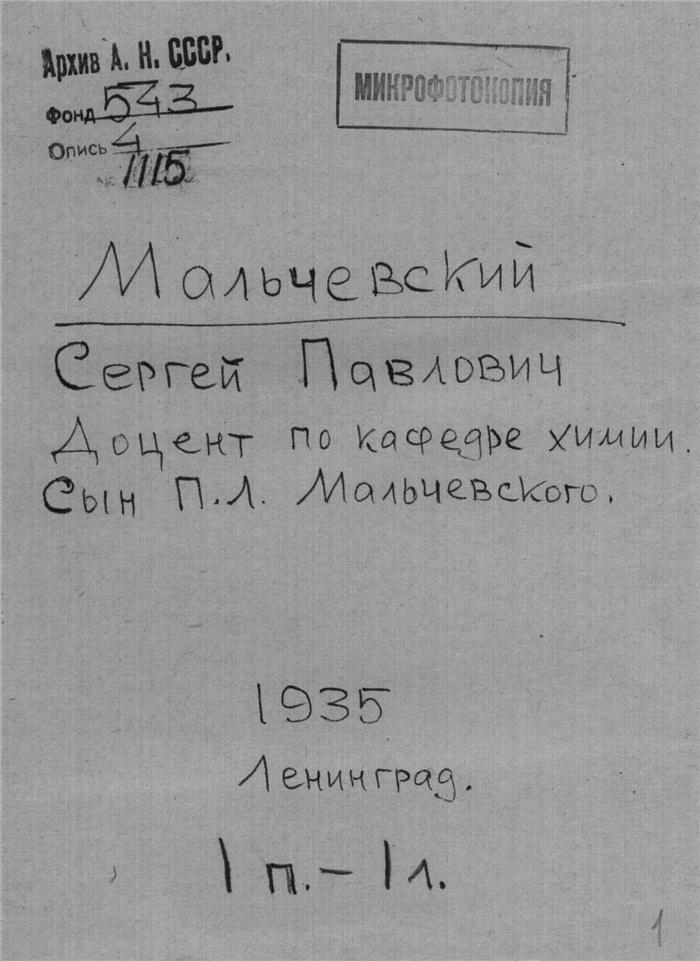 Архив А. Н. СССР.
Фонд 543
Опись 4
№ 1115
МИКРОФОТОКОПИЯ
Мальчевский
Сергей Павлович
Доцент по кафедре химии.
Сын П.Л. Мальчевского.
1935
Ленинград.
1 п. – 1 л.
1